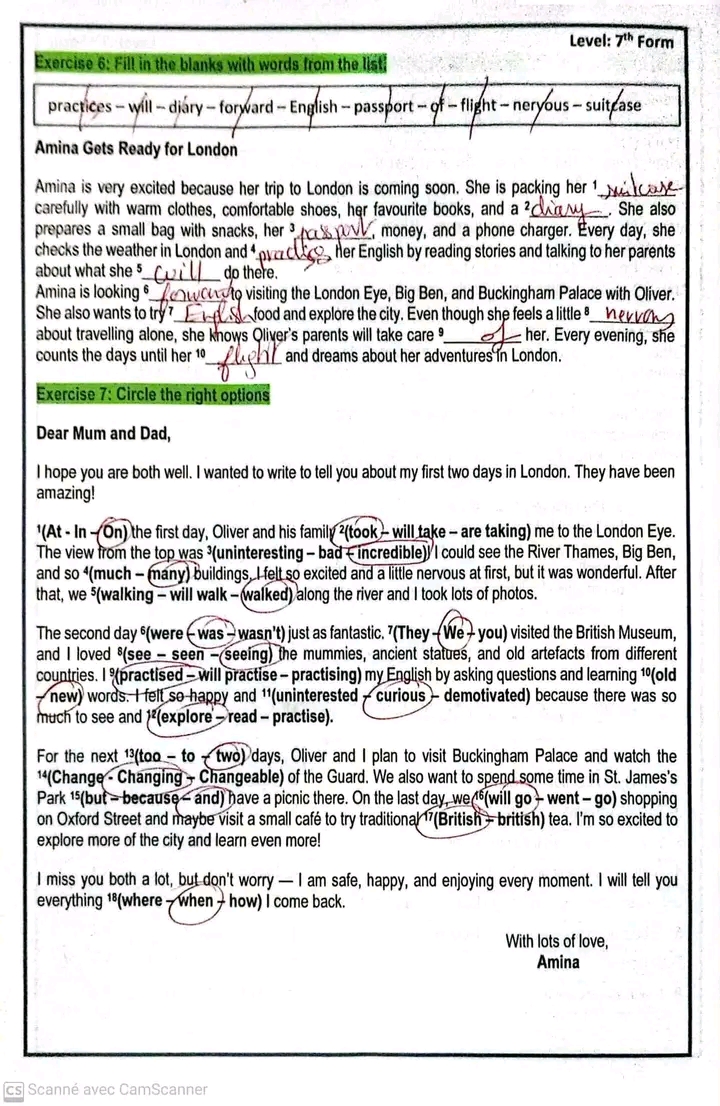 Level: 7th Form
Exercise 6: Fill in the blanks with words from the list:
practices – will – diary – forward – English – passport – of – flight – nervous – suitcase
Amina Gets Ready for London
Amina is very excited because her trip to London is coming soon. She is packing her 1 suitcase
carefully with warm clothes, comfortable shoes, her favourite books, and a 2 diary. She also
prepares a small bag with snacks, her 3 passport, money, and a phone charger. Every day, she
checks the weather in London and 4 practices her English by reading stories and talking to her parents
about what she 5 will do there.
Amina is looking 6 forward to visiting the London Eye, Big Ben, and Buckingham Palace with Oliver.
She also wants to try 7 English food and explore the city. Even though she feels a little 8 nervous
about travelling alone, she knows Oliver's parents will take care 9 of her. Every evening, she
counts the days until her 10 flight and dreams about her adventures in London.
Exercise 7: Circle the right options
Dear Mum and Dad,
I hope you are both well. I wanted to write to tell you about my first two days in London. They have been
amazing!
1(At - In – On) the first day, Oliver and his family 2(took – will take – are taking) me to the London Eye.
The view from the top was 3(uninteresting – bad – incredible)! I could see the River Thames, Big Ben,
and so 4(much – many) buildings. I felt so excited and a little nervous at first, but it was wonderful. After
that, we 5(walking – will walk – walked) along the river and I took lots of photos.
The second day 6(were – was – wasn't) just as fantastic. 7(They – We – you) visited the British Museum,
and I loved 8(see – seen – seeing) the mummies, ancient statues, and old artefacts from different
countries. I 9(practised – will practise – practising) my English by asking questions and learning 10(old
– new) words. I felt so happy and 11(uninterested – curious – demotivated) because there was so
much to see and 12(explore – read – practise).
For the next 13(too – to – two) days, Oliver and I plan to visit Buckingham Palace and watch the
14(Change - Changing – Changeable) of the Guard. We also want to spend some time in St. James's
Park 15(but – because – and) have a picnic there. On the last day, we 16(will go – went – go) shopping
on Oxford Street and maybe visit a small café to try traditional 17(British – british) tea. I'm so excited to
explore more of the city and learn even more!
I miss you both a lot, but don't worry — I am safe, happy, and enjoying every moment. I will tell you
everything 18(where – when – how) I come back.
With lots of love,
Amina
CS Scanné avec CamScanner